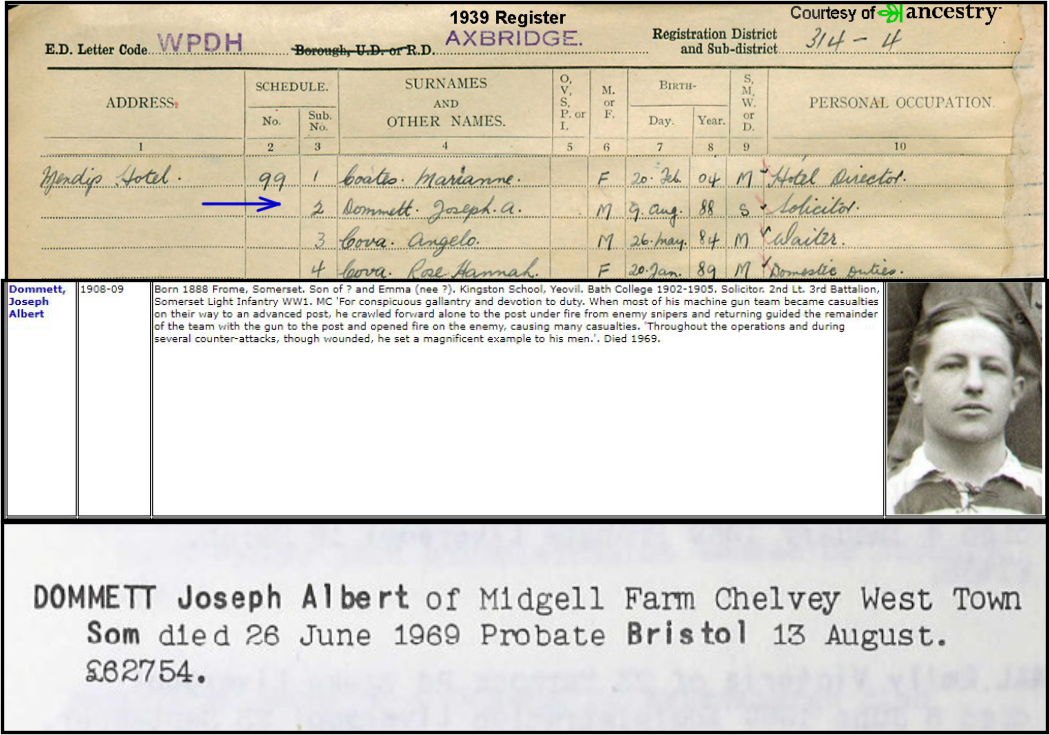 1939 Register
Courtesy of ancestry
E.D. Letter Code WPDH Borough, U.D. or R.D. AXBRIDGE. Registration District and Sub-district 314 - 4
ADDRESS. SCHEDULE. No. Sub. No. SURNAMES AND OTHER NAMES. O, V, S, P. or I. M. or F. BIRTH- Day. Year. S, M, W. or D. PERSONAL OCCUPATION.
1 2 3 4 5 6 7 8 9 10
Mendip Hotel. 99 1 Coates. Marianne. F 20. Feb. 04 M Hotel Director.
2 Dommett. Joseph. A. M 9. Aug. 88 S Solicitor.
3 Cova. Angelo. M 26. May. 84 M Waiter.
4 Cova. Rose Hannah. F 20. Jan. 89 M Domestic Duties.
Dommett, Joseph Albert
1908-09
Born 1888 Frome, Somerset. Son of ? and Emma (nee ?). Kingston School, Yeovil. Bath College 1902-1905. Solicitor. 2nd Lt. 3rd Battalion,
Somerset Light Infantry WW1. MC 'For conspicuous gallantry and devotion to duty. When most of his machine gun team became casualties
on their way to an advanced post, he crawled forward alone to the post under fire from enemy snipers and returning guided the remainder
of the team with the gun to the post and opened fire on the enemy, causing many casualties. 'Throughout the operations and during
several counter-attacks, though wounded, he set a magnificent example to his men.'. Died 1969.
DOMMETT Joseph Albert of Midgell Farm Chelvey West Town
Som died 26 June 1969 Probate Bristol 13 August.
£62754.